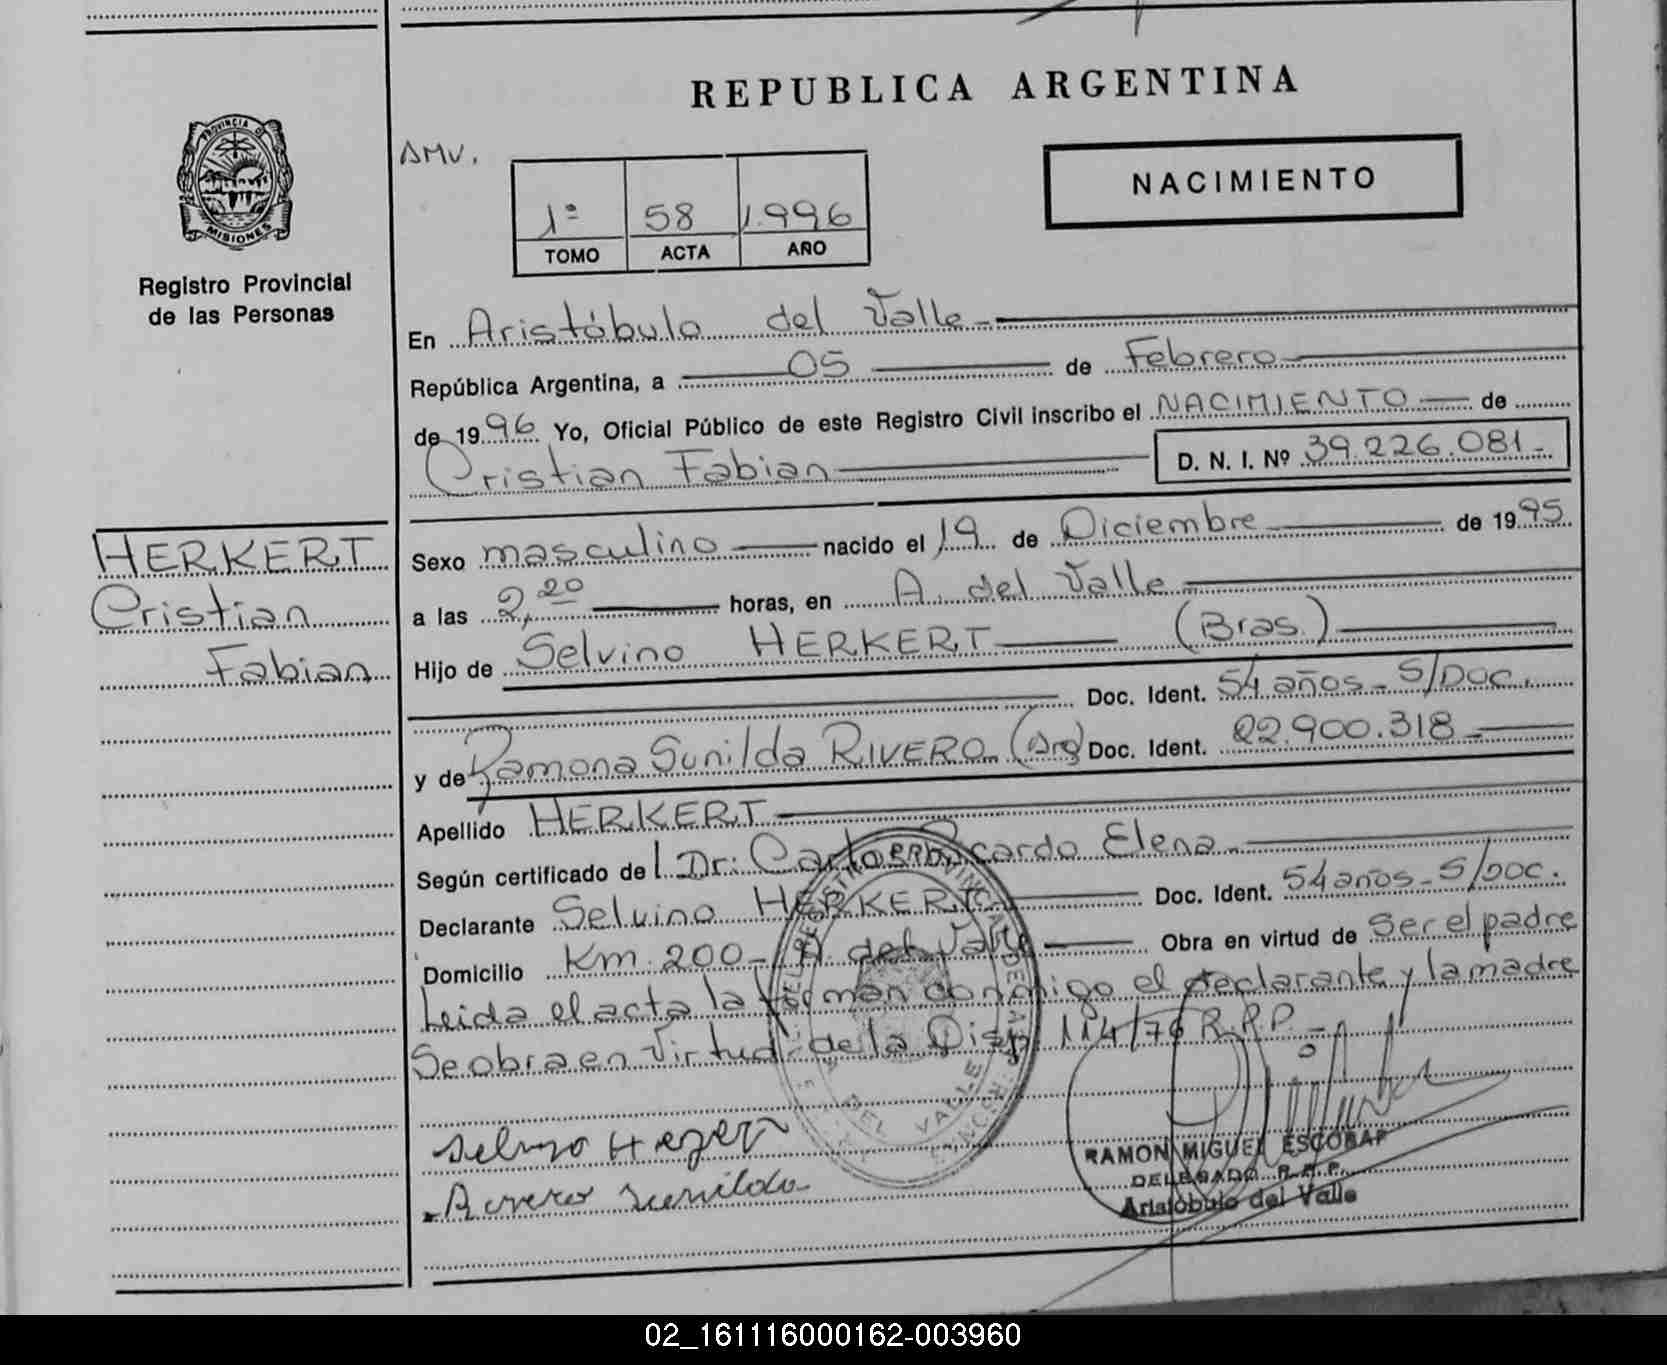 REPUBLICA ARGENTINA
PROVINCIA D
MISIONES
Registro Provincial
de las Personas
AMV.
1º 58 1.996
TOMO ACTA AÑO
NACIMIENTO
En Aristóbulo del Valle
República Argentina, a 05 de Febrero
de 1996 Yo, Oficial Público de este Registro Civil inscribo el NACIMIENTO de
Cristian Fabian D. N. I. Nº 39.226.081.-
HERKERT
Cristian
Fabian
Sexo masculino nacido el 19 de Diciembre de 1995
a las 2,20 horas, en A. del Valle
Hijo de Selvino HERKERT (Bras.)
Doc. Ident. 54 años - S/Doc.
y de Ramona Sunilda RIVERO (Arg) Doc. Ident. 22.900.318
Apellido HERKERT
Según certificado de l Dr: Carlos Ricardo Elena
Declarante Selvino HERKERT Doc. Ident. 54 años - S/Doc.
Domicilio Km 200 - A. del Valle Obra en virtud de Ser el padre
Leida el acta la forman conmigo el declarante y la madre
Se obra en virtud de la Disp. 114/76 R.P.P.-
DEL VALLE
Rivero Sunilda
RAMON MIGUEL ESCOBAR
DELEGADO R.P.P.
Aristóbulo del Valle
02_161116000162-003960